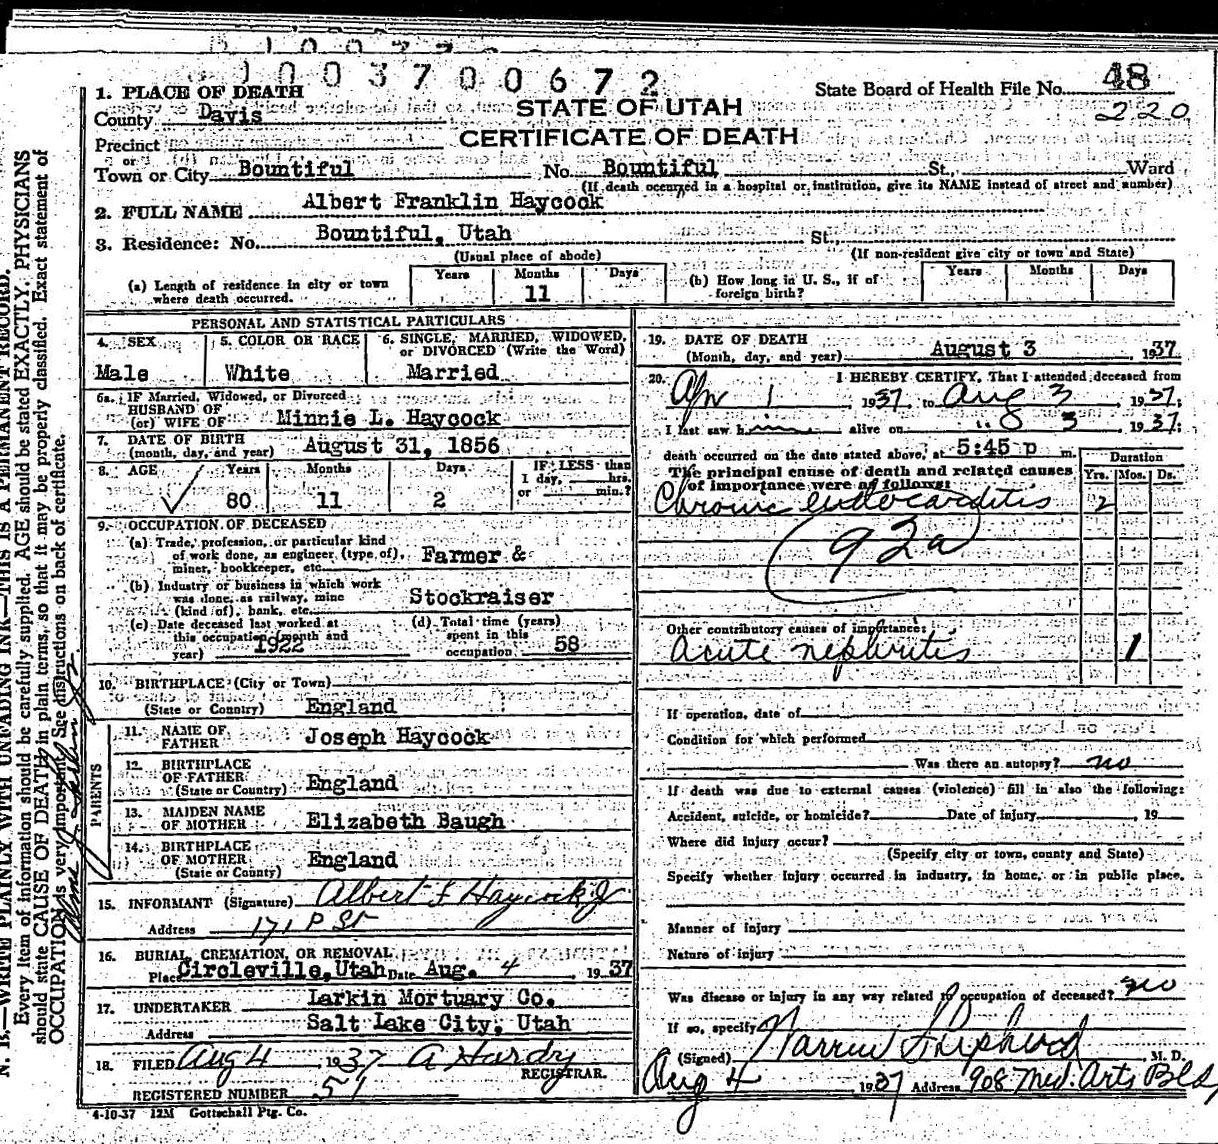 1003700672
1. PLACE OF DEATH
State Board of Health File No. 48
220
County Davis
STATE OF UTAH
CERTIFICATE OF DEATH
Precinct
or
Town or City Bountiful No. Bountiful St., Ward
(If death occurred in a hospital or institution, give its NAME instead of street and number)
2. FULL NAME Albert Franklin Haycock
3. Residence: No. Bountiful, Utah St.,
(Usual place of abode) (If non-resident give city or town and State)
(a) Length of residence in city or town where death occurred. Years Months 11 Days
(b) How long in U. S., if of foreign birth? Years Months Days
PERSONAL AND STATISTICAL PARTICULARS
4. SEX Male
5. COLOR OR RACE White
6. SINGLE, MARRIED, WIDOWED, or DIVORCED (Write the Word) Married
6a. IF Married, Widowed, or Divorced
HUSBAND OF
(or) WIFE OF Minnie L. Haycock
7. DATE OF BIRTH
(month, day, and year) August 31, 1856
8. AGE Years 80 Months 11 Days 2 IF LESS than 1 day, hrs. or min.?
9. OCCUPATION OF DECEASED
(a) Trade, profession, or particular kind
of work done, as engineer (type of), Farmer &
miner, bookkeeper, etc.
(b) Industry or business in which work
was done, as railway, mine Stockraiser
(kind of), bank, etc.
(c) Date deceased last worked at
this occupation (month and
year) 1922
(d) Total time (years)
spent in this
occupation 58
10. BIRTHPLACE (City or Town)
(State or Country) England
PARENTS
11. NAME OF
FATHER Joseph Haycock
12. BIRTHPLACE
OF FATHER
(State or Country) England
13. MAIDEN NAME
OF MOTHER Elizabeth Baugh
14. BIRTHPLACE
OF MOTHER
(State or County) England
15. INFORMANT (Signature) Albert F Haycock Jr
Address 171 P St
16. BURIAL, CREMATION, OR REMOVAL
Place Circleville, Utah Date Aug. 4, 1937
17. UNDERTAKER Larkin Mortuary Co.
Address Salt Lake City, Utah
18. FILED Aug 4 1937 A Hardy
REGISTRAR.
REGISTERED NUMBER 51
4-10-37 12M Gottschall Ptg. Co.
19. DATE OF DEATH
(Month, day, and year) August 3 1937
20. I HEREBY CERTIFY, That I attended deceased from
Apr 1 1937, to Aug 3 1937;
I last saw him alive on " 3 1937;
death occurred on the date stated above, at 5:45 p m.
Duration
Yrs. Mos. Ds.
The principal cause of death and related causes
of importance were as follows:
Chronic endocarditis 2
92a
Other contributory causes of importance:
Acute nephritis 1
If operation, date of
Condition for which performed
Was there an autopsy? no
If death was due to external causes (violence) fill in also the following:
Accident, suicide, or homicide? Date of injury, 19
Where did injury occur?
(Specify city or town, county and State)
Specify whether injury occurred in industry, in home, or in public place.
Manner of injury
Nature of injury
Was disease or injury in any way related to occupation of deceased? no
If so, specify
(Signed) Warren Shepherd M. D.
Aug 4 1937 Address 908 Med. Arts Bld,
N. B.—WRITE PLAINLY WITH UNFADING INK—THIS IS A PERMANENT RECORD.
Every item of information should be carefully supplied. AGE should be stated EXACTLY. PHYSICIANS
should state CAUSE OF DEATH in plain terms, so that it may be properly classified. Exact statement of
OCCUPATION is very important. See instructions on back of certificate.